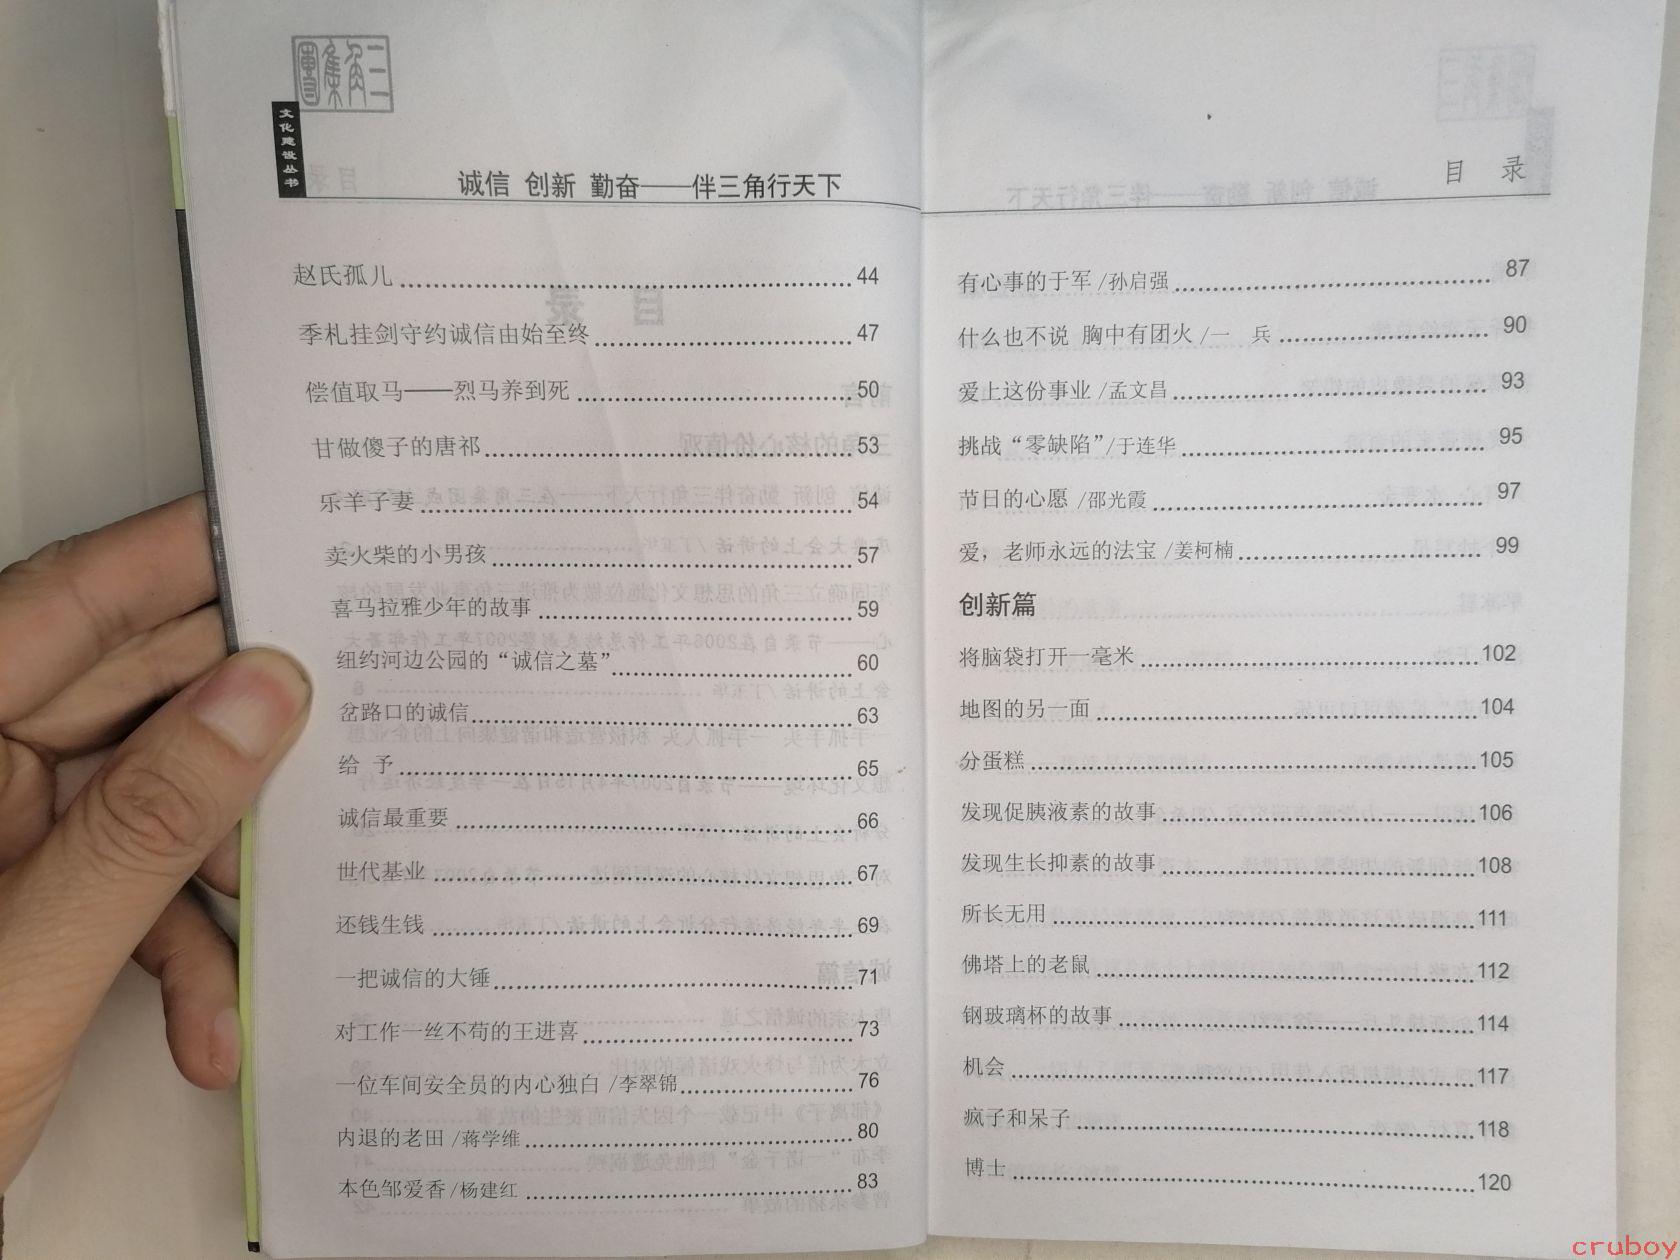 三角集團
文化建设丛书
诚信 创新 勤奋——伴三角行天下
赵氏孤儿 44
季札挂剑守约诚信由始至终 47
偿值取马——烈马养到死 50
甘做傻子的唐祁 53
乐羊子妻 54
卖火柴的小男孩 57
喜马拉雅少年的故事 59
纽约河边公园的“诚信之墓” 60
岔路口的诚信 63
给 予 65
诚信最重要 66
世代基业 67
还钱生钱 69
一把诚信的大锤 71
对工作一丝不苟的王进喜 73
一位车间安全员的内心独白 /李翠锦 76
内退的老田 /蒋学维 80
本色邹爱香 /杨建红 83
目 录
有心事的于军 /孙启强 87
什么也不说 胸中有团火 /一 兵 90
爱上这份事业 /孟文昌 93
挑战“零缺陷”/于连华 95
节日的心愿 /邵光霞 97
爱，老师永远的法宝 /姜柯楠 99
创新篇
将脑袋打开一毫米 102
地图的另一面 104
分蛋糕 105
发现促胰液素的故事 106
发现生长抑素的故事 108
所长无用 111
佛塔上的老鼠 112
钢玻璃杯的故事 114
机会 117
疯子和呆子 118
博士 120
cruboy